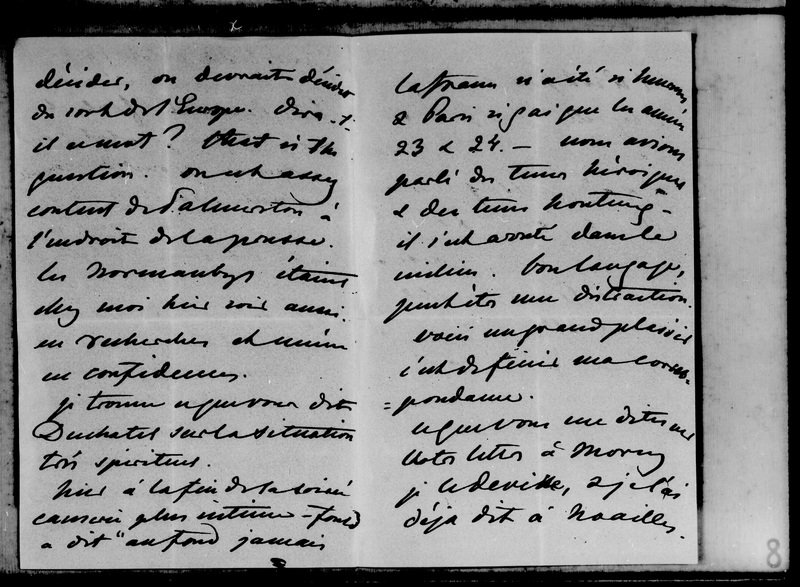 décider, on devrait décider
du sort de l'Europe. dira-t-
il un mot? that is the
question. on est assez
content de Palmerston à
l'endroit de la presse.
les Normanbys étaient
chez moi hier soir aussi.
en recherches et même
en confidences.
je trouve ce que vous dit
Duchatel sur la situation
très spirituel.
hier à la fin de la soirée
causerie plus intime - fould
a dit "au fond jamais
la france n'a été si heureuse,
& Paris si gai que les années
23 & 24. - nous avions
parlé des tems héroïques
& des tems honteux -
il s'est arrêté dans le
milieu. bon langage,
peut-être une distraction.
voici un grand plaisir
c'est de finir ma corres-
=pondance.
ce que vous me dites sur
votre lettre à Morny
je le devine, & je l'ai
déjà dit à Noailles.
8